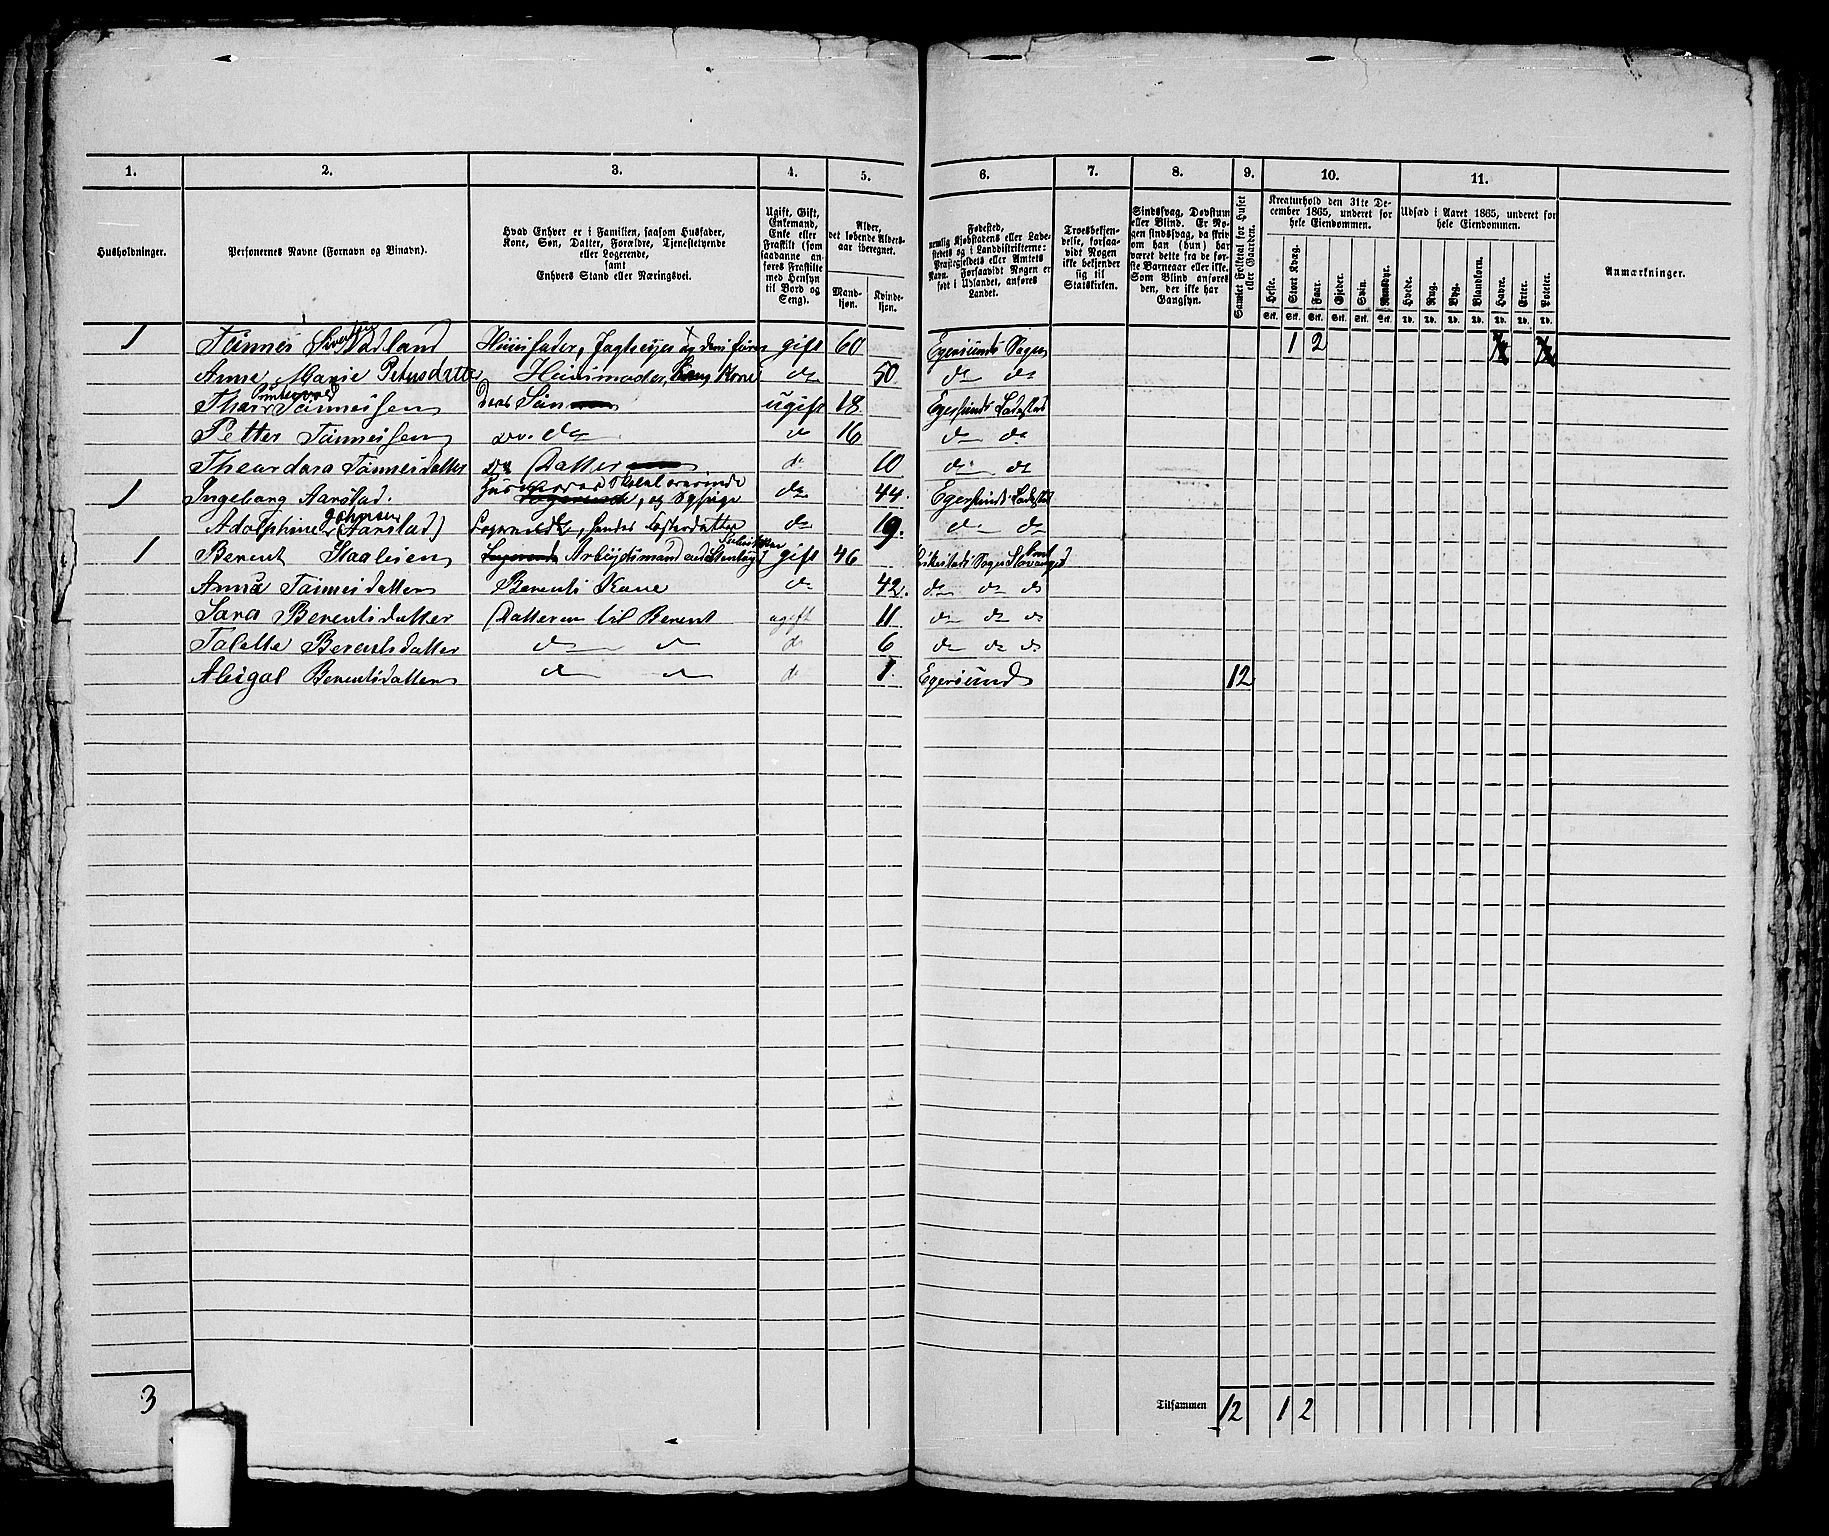 1. 2. 3. 4. 5. 6. 7. 8. 9. 10. 11.
Husholdninger.
Personernes Navne (Fornavn og Binavn).
Hvad Enhver er i Familien, saasom Husfader,
Kone, Søn, Datter, Forældre, Tjenestetyende
eller Logerende,
samt
Enhvers Stand eller Næringsvei.
Ugift, Gift,
Enkemand,
Enke eller
Fraskilt (som
saadanne an-
føres Fraskilte
med Hensyn
til Bord og
Seng).
Alder,
det løbende Alders-
aar iberegnet.
Mand-
kjøn.
Kvinde-
kjøn.
Fødested,
nemlig Kjøbstadens eller Lade-
stedets og i Landdistrikterne:
Præstegjeldets eller Amtets
Navn. Forsaavidt Nogen er
født i Udlandet, anføres
Landet.
Troesbekjen-
delse, forsaa-
vidt Nogen
ikke bekjender
sig til
Statskirken.
Sindssvag, Døvstum
eller Blind. Er No-
gen sindssvag, da skriv
om han (hun) har
været dette fra de før-
ste Barneaar eller ikke.
Som Blind anføres
den, der ikke har
Gangsyn.
Samlet Folketal for Huset
eller Gaarden.
Kreaturhold den 31te De-
cember 1865, underet for
hele Eiendommen.
Heste. Stort Kvæg. Faar. Gjeder. Svin. Rensdyr.
Stk. Stk. Stk. Stk. Stk. Stk.
Udsæd i Aaret 1865, underet for
hele Eiendommen.
Hvede. Rug. Byg. Blandkorn. Havre. Erter. Poteter.
Td. Td. Td. Td. Td. Td. Td.
Anmærkninger.
1 Tønnes Nadland Huusfader, gift 60 Egersunds Sogn 1 2
Anne Marie Petersdatter Huusmoder, Kone do 50 do do
Tønnessen Deres Søn ugift 18 Egersunds Ladested
Petter Tønnessen do 16 do do
Theodora Tønnesdatter Datter do 10 do do
1 Ingeborg Aarstad. og Sypige do 44 Egersunds Ladested
Adolphine Aarstad) Logerende, Søsterdatter do 19. do do
1 Berent Staalesen Logerende Arbeidsmand gift 46
Anna Tønnesdatter Berents Kone do 42. do do do
Sara Berentsdatter Datteren til Berent ugift 11 do do do
Talette Berentsdatter do do do 6 do do do
Abigal Berentsdatter do do do 1 Egersund 12
3 Tilsammen 12 1 2